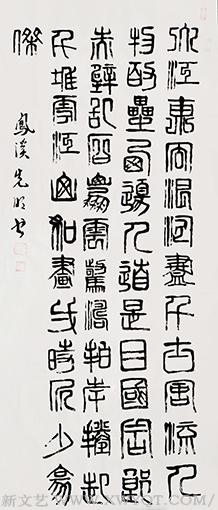 大江東去浪淘盡千古風流人
物故壘西邊人道是三國周郎
赤壁亂石崩雲驚濤拍岸捲起
千堆雪江山如畫一時多少豪
傑
鳳溪先明书
新文艺